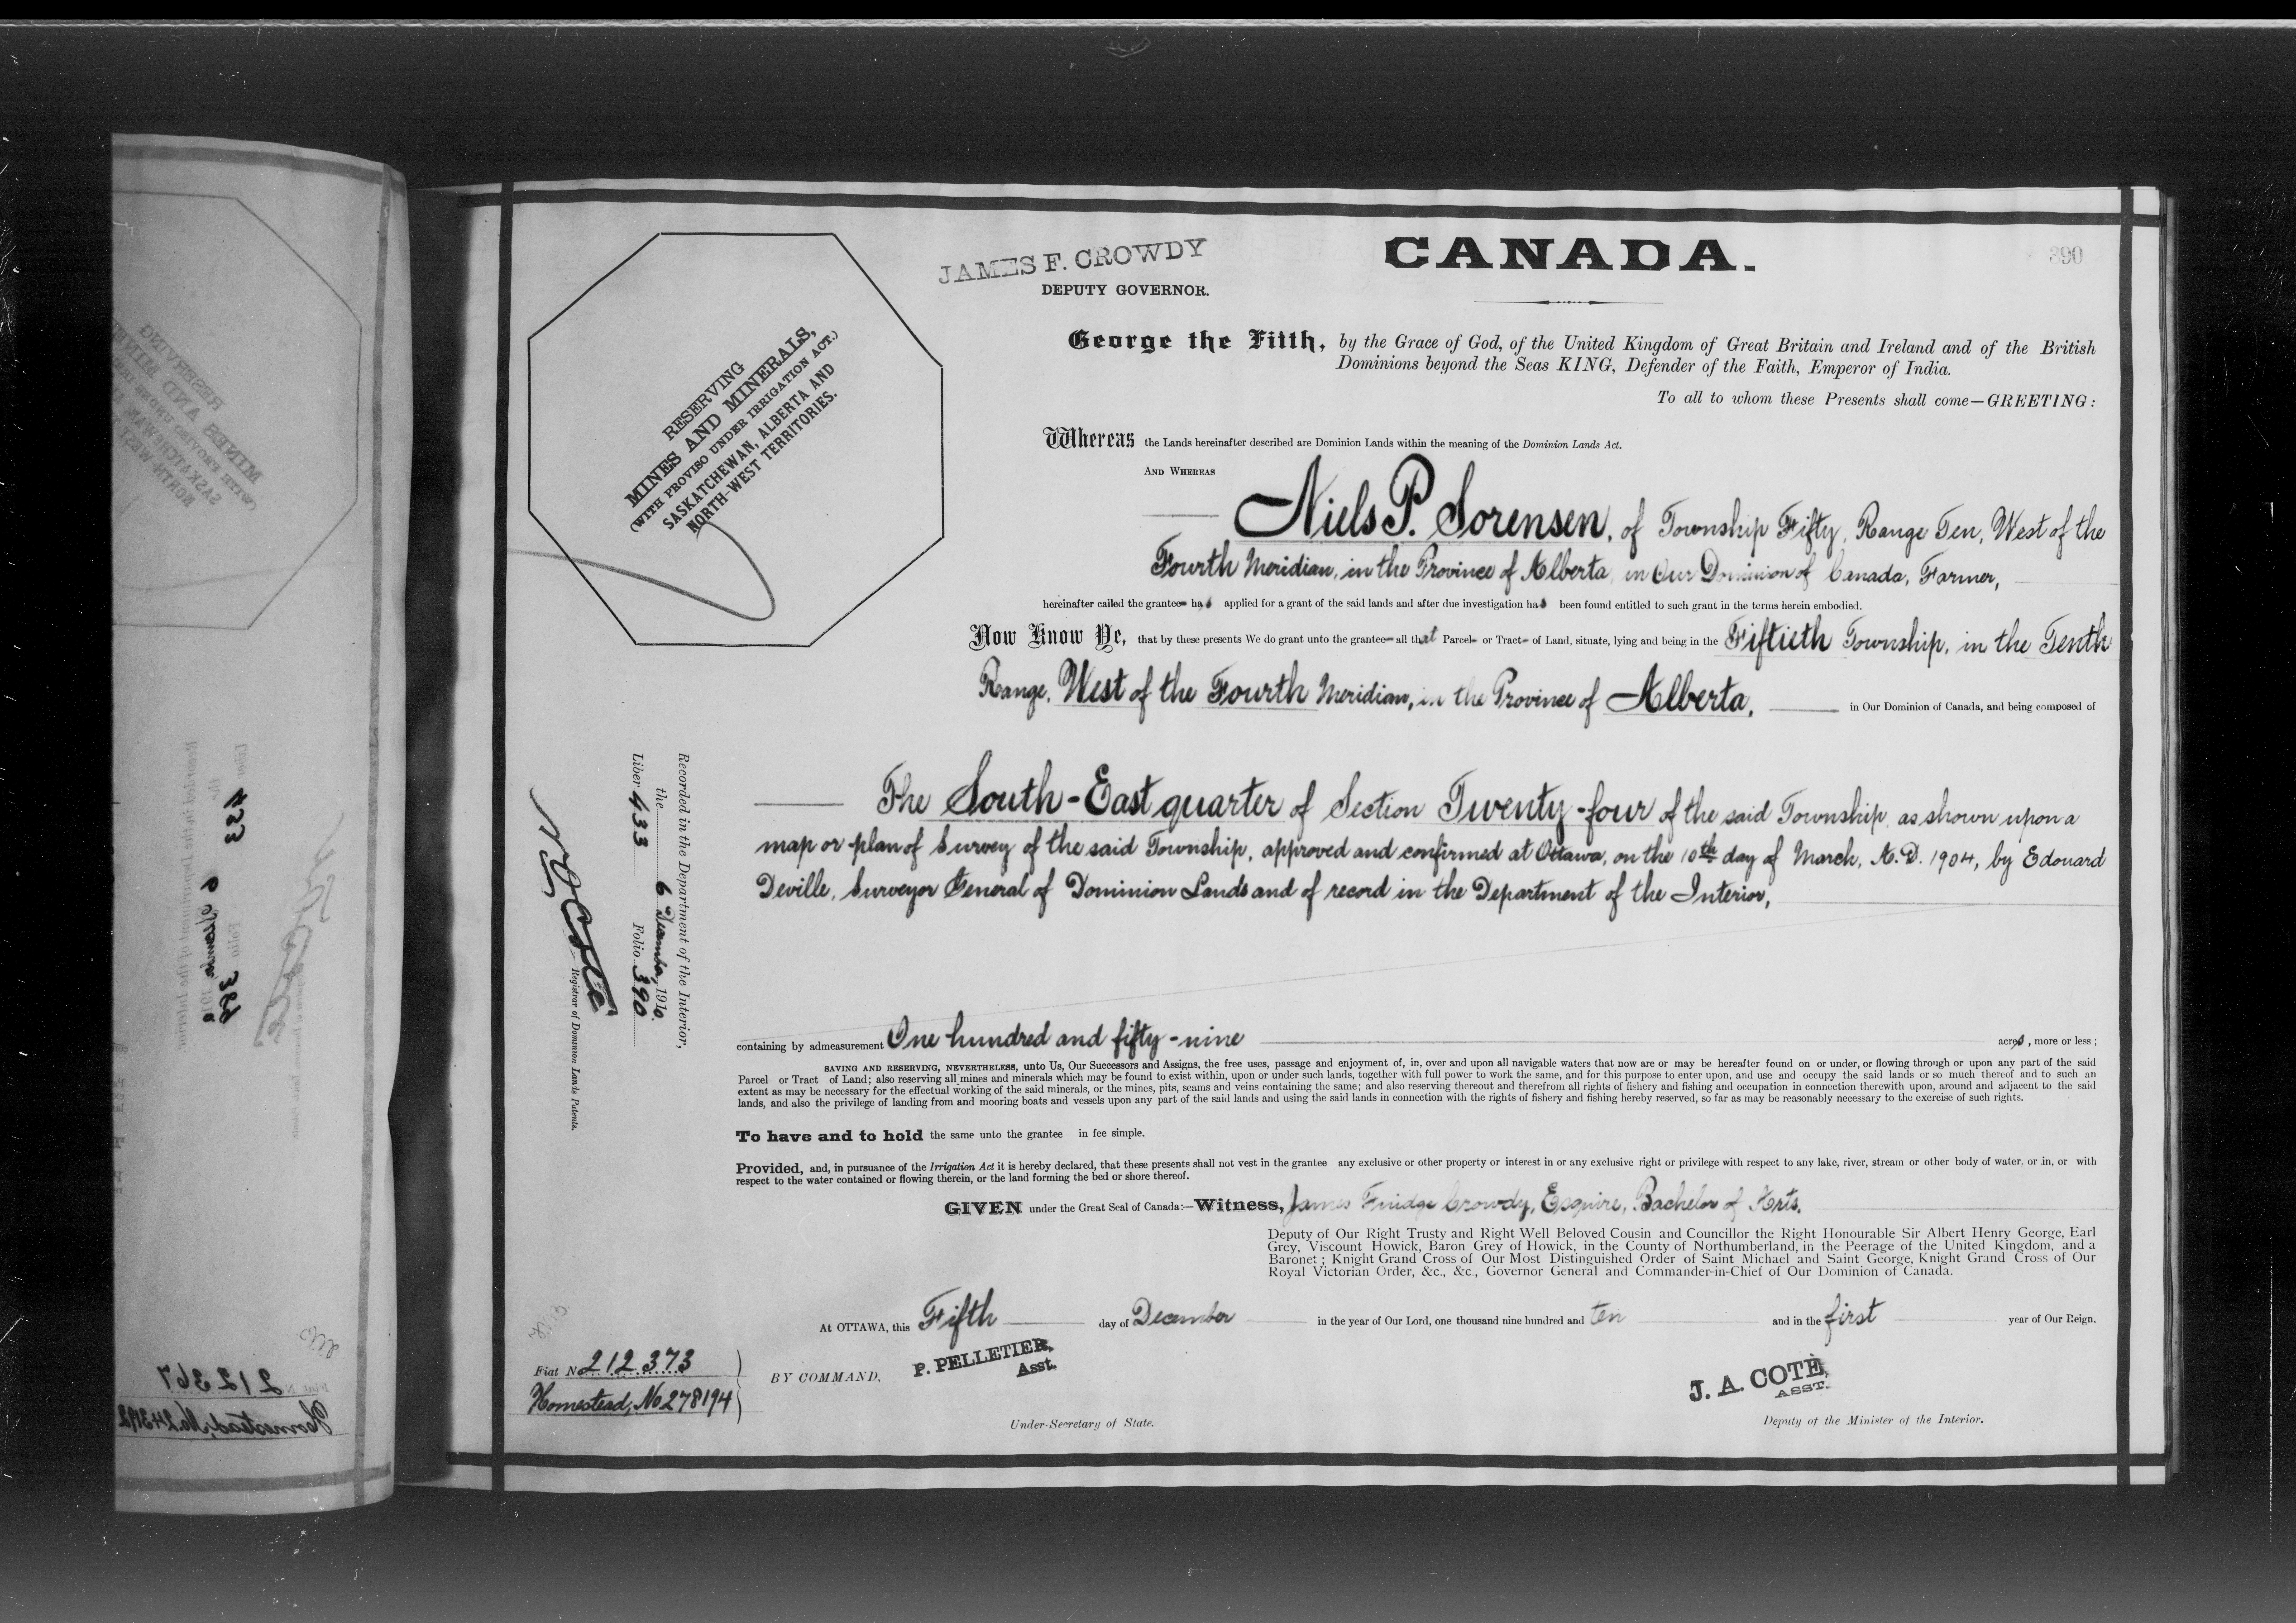 JAMES F. CROWDY
DEPUTY GOVERNOR.
CANADA.
390
RESERVING
MINES AND MINERALS,
(WITH PROVISO UNDER IRRIGATION ACT.)
SASKATCHEWAN, ALBERTA AND
NORTH-WEST TERRITORIES.
George the Fifth, by the Grace of God, of the United Kingdom of Great Britain and Ireland and of the British
Dominions beyond the Seas KING, Defender of the Faith, Emperor of India.
To all to whom these Presents shall come—GREETING:
Whereas the Lands hereinafter described are Dominion Lands within the meaning of the Dominion Lands Act.
AND WHEREAS
Niels P. Sorensen, of Township Fifty, Range Ten, West of the
Fourth Meridian, in the Province of Alberta, in Our Dominion of Canada, Farmer,
hereinafter called the grantee has applied for a grant of the said lands and after due investigation has been found entitled to such grant in the terms herein embodied.
Now Know Ye, that by these presents We do grant unto the grantee all that Parcel or Tract of Land, situate, lying and being in the Fiftieth Township, in the Tenth
Range, West of the Fourth Meridian, in the Province of Alberta, in Our Dominion of Canada, and being composed of
The South-East quarter of Section Twenty-four of the said Township, as shown upon a
map or plan of Survey of the said Township, approved and confirmed at Ottawa, on the 10th day of March, A.D. 1904, by Edouard
Deville, Surveyor General of Dominion Lands and of record in the Department of the Interior,
Recorded in the Department of the Interior,
the 6 December, 1910.
Liber 433 Folio 390
N O Coté
Registrar of Dominion Lands Patents.
containing by admeasurement One hundred and fifty-nine acres, more or less;
SAVING AND RESERVING, NEVERTHELESS, unto Us, Our Successors and Assigns, the free uses, passage and enjoyment of, in, over and upon all navigable waters that now are or may be hereafter found on or under, or flowing through or upon any part of the said
Parcel or Tract of Land; also reserving all mines and minerals which may be found to exist within, upon or under such lands, together with full power to work the same, and for this purpose to enter upon, and use and occupy the said lands or so much thereof and to such an
extent as may be necessary for the effectual working of the said minerals, or the mines, pits, seams and veins containing the same; and also reserving thereout and therefrom all rights of fishery and fishing and occupation in connection therewith upon, around and adjacent to the said
lands, and also the privilege of landing from and mooring boats and vessels upon any part of the said lands and using the said lands in connection with the rights of fishery and fishing hereby reserved, so far as may be reasonably necessary to the exercise of such rights.
To have and to hold the same unto the grantee in fee simple.
Provided, and, in pursuance of the Irrigation Act it is hereby declared, that these presents shall not vest in the grantee any exclusive or other property or interest in or any exclusive right or privilege with respect to any lake, river, stream or other body of water, or in, or with
respect to the water contained or flowing therein, or the land forming the bed or shore thereof.
GIVEN under the Great Seal of Canada:—Witness, James Fuidge Crowdy, Esquire, Bachelor of Arts,
Deputy of Our Right Trusty and Right Well Beloved Cousin and Councillor the Right Honourable Sir Albert Henry George, Earl
Grey, Viscount Howick, Baron Grey of Howick, in the County of Northumberland, in the Peerage of the United Kingdom, and a
Baronet; Knight Grand Cross of Our Most Distinguished Order of Saint Michael and Saint George, Knight Grand Cross of Our
Royal Victorian Order, &c., &c., Governor General and Commander-in-Chief of Our Dominion of Canada.
At OTTAWA, this Fifth day of December in the year of Our Lord, one thousand nine hundred and ten and in the first year of Our Reign.
Fiat No 212373
Homestead, No 278194
BY COMMAND,
P. PELLETIER,
Asst.
Under-Secretary of State.
J. A. COTÉ,
ASST.
Deputy of the Minister of the Interior.